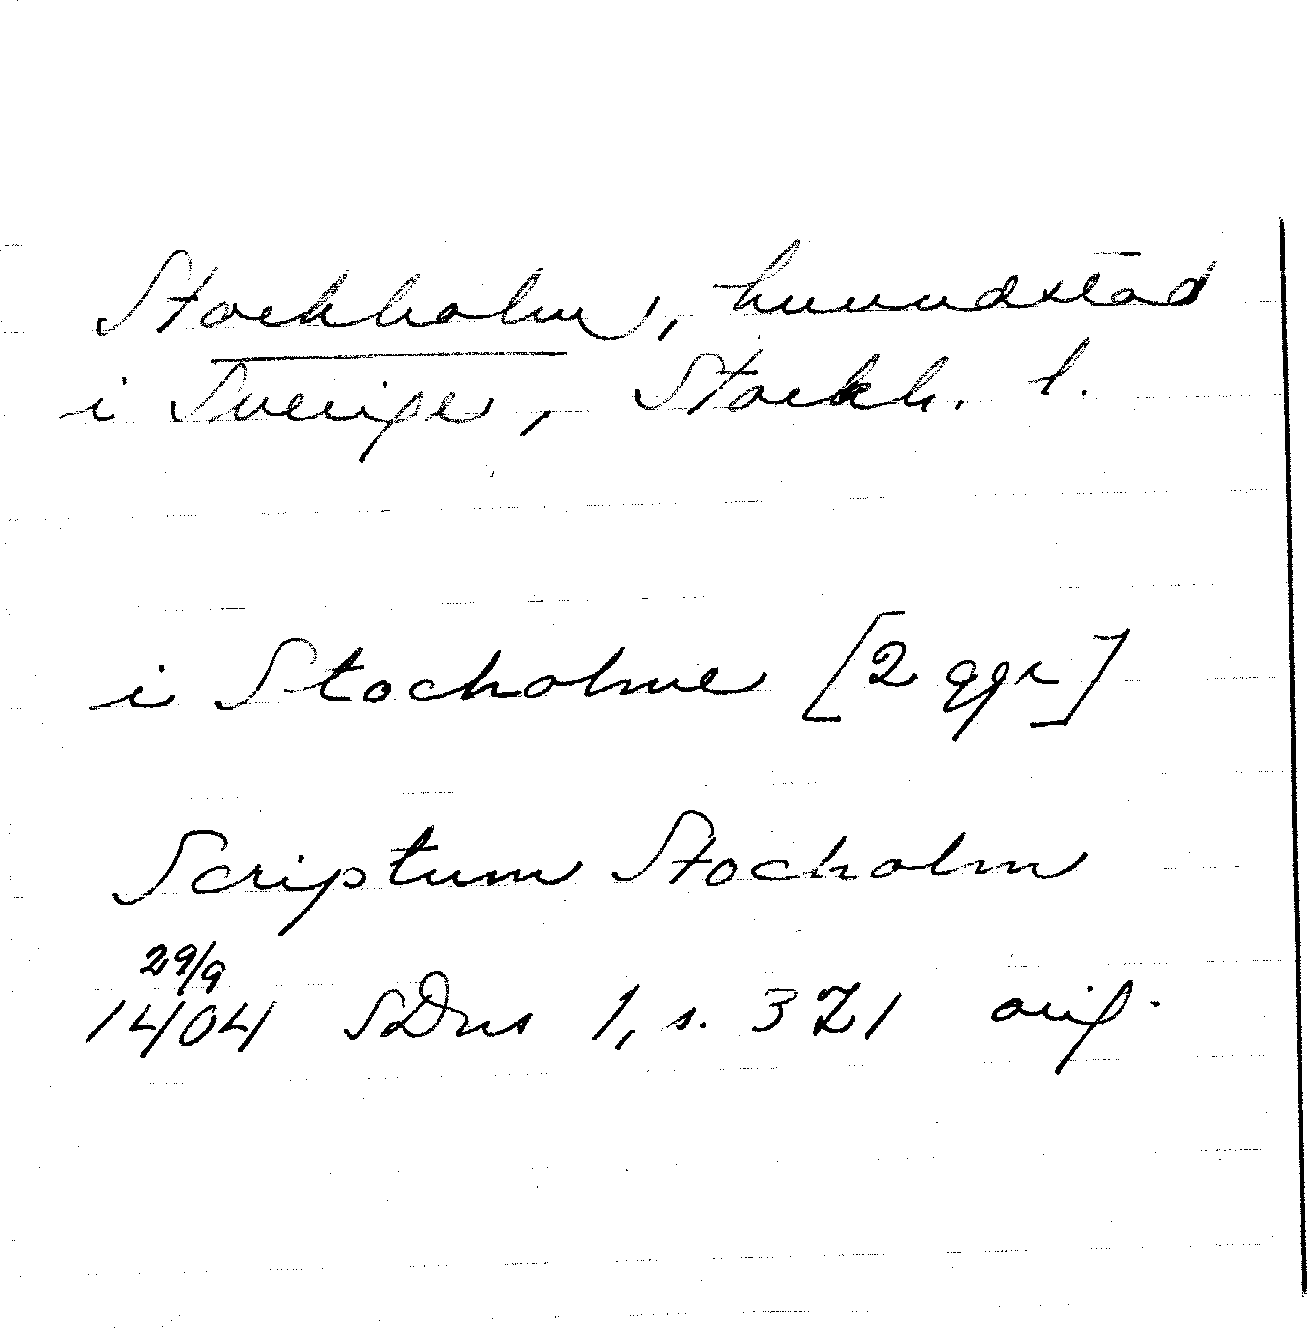 Stockholm, huvudstad
i Sverige, Stockh. l.
i Stocholme [2 ggr]
Scriptum Stocholm
29/9
1404 SDns 1, s. 321 orig.